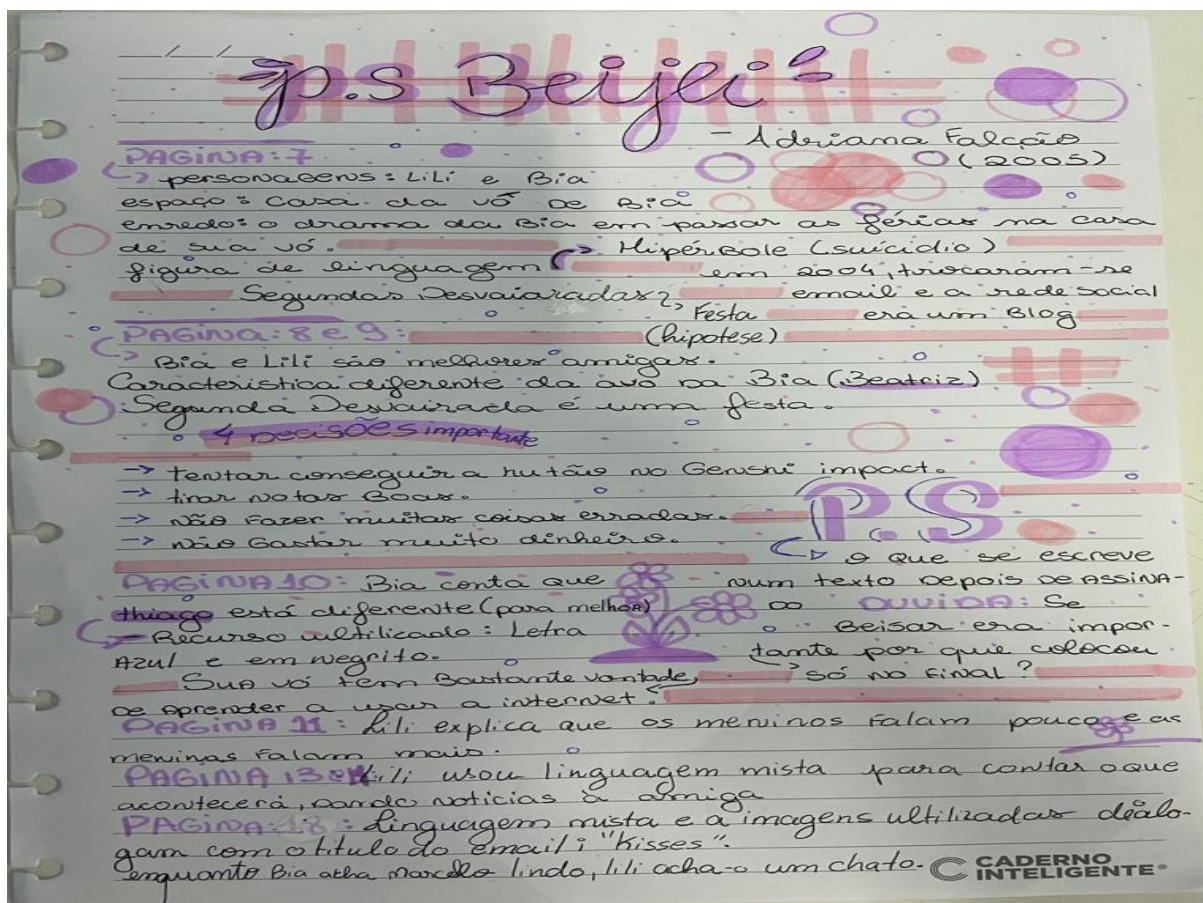 __/__/__
P.s Beijei
- Adriana Falcão
(2005)
PAGINA: 7
personagens: Lili e Bia
espaço: casa da vó de Bia
enredo: o drama da Bia em passar as férias na casa
de sua vó.
Hipérbole (suicídio)
figura de linguagem
em 2004, trocaram-se
Segundas Desvairadas
email e a rede social
Festa
era um Blog
PAGINA: 8 e 9:
(hipotese)
Bia e Lili são melhores amigas.
Caracteristica diferente da avó da Bia (Beatriz)
Segunda Desvairada é uma festa.
4 Decisões importante
→ tentar conseguir a hutão no Genshi impact.
→ tirar notas Boas.
→ não Fazer muitas coisas erradas.
→ não Gastar muito dinheiro.
P.S
o que se escreve
num texto Depois De Assina-
do
PAGINA 10: Bia conta que
thiago está diferente (para melhor)
Recurso ultilizado: Letra
Azul e em negrito.
DUVIDA: Se
Beisar era impor-
tante por quie colocou
só no Final?
Sua vó tem Bastante vontade,
De Aprender a usar a internet.
PAGINA 11: Lili explica que os meninos Falam pouco e as
meninas Falam mais.
PAGINA 13 Lili usou linguagem mista para contar o que
acontecerá, Dando noticias à amiga
PAGINA: 18: Linguagem mista e a imagens ultilizadas diálo-
gam com o titulo do email: "Kisses".
enquanto Bia acha Marcelo lindo, lili acha-o um chato.
CADERNO
INTELIGENTE